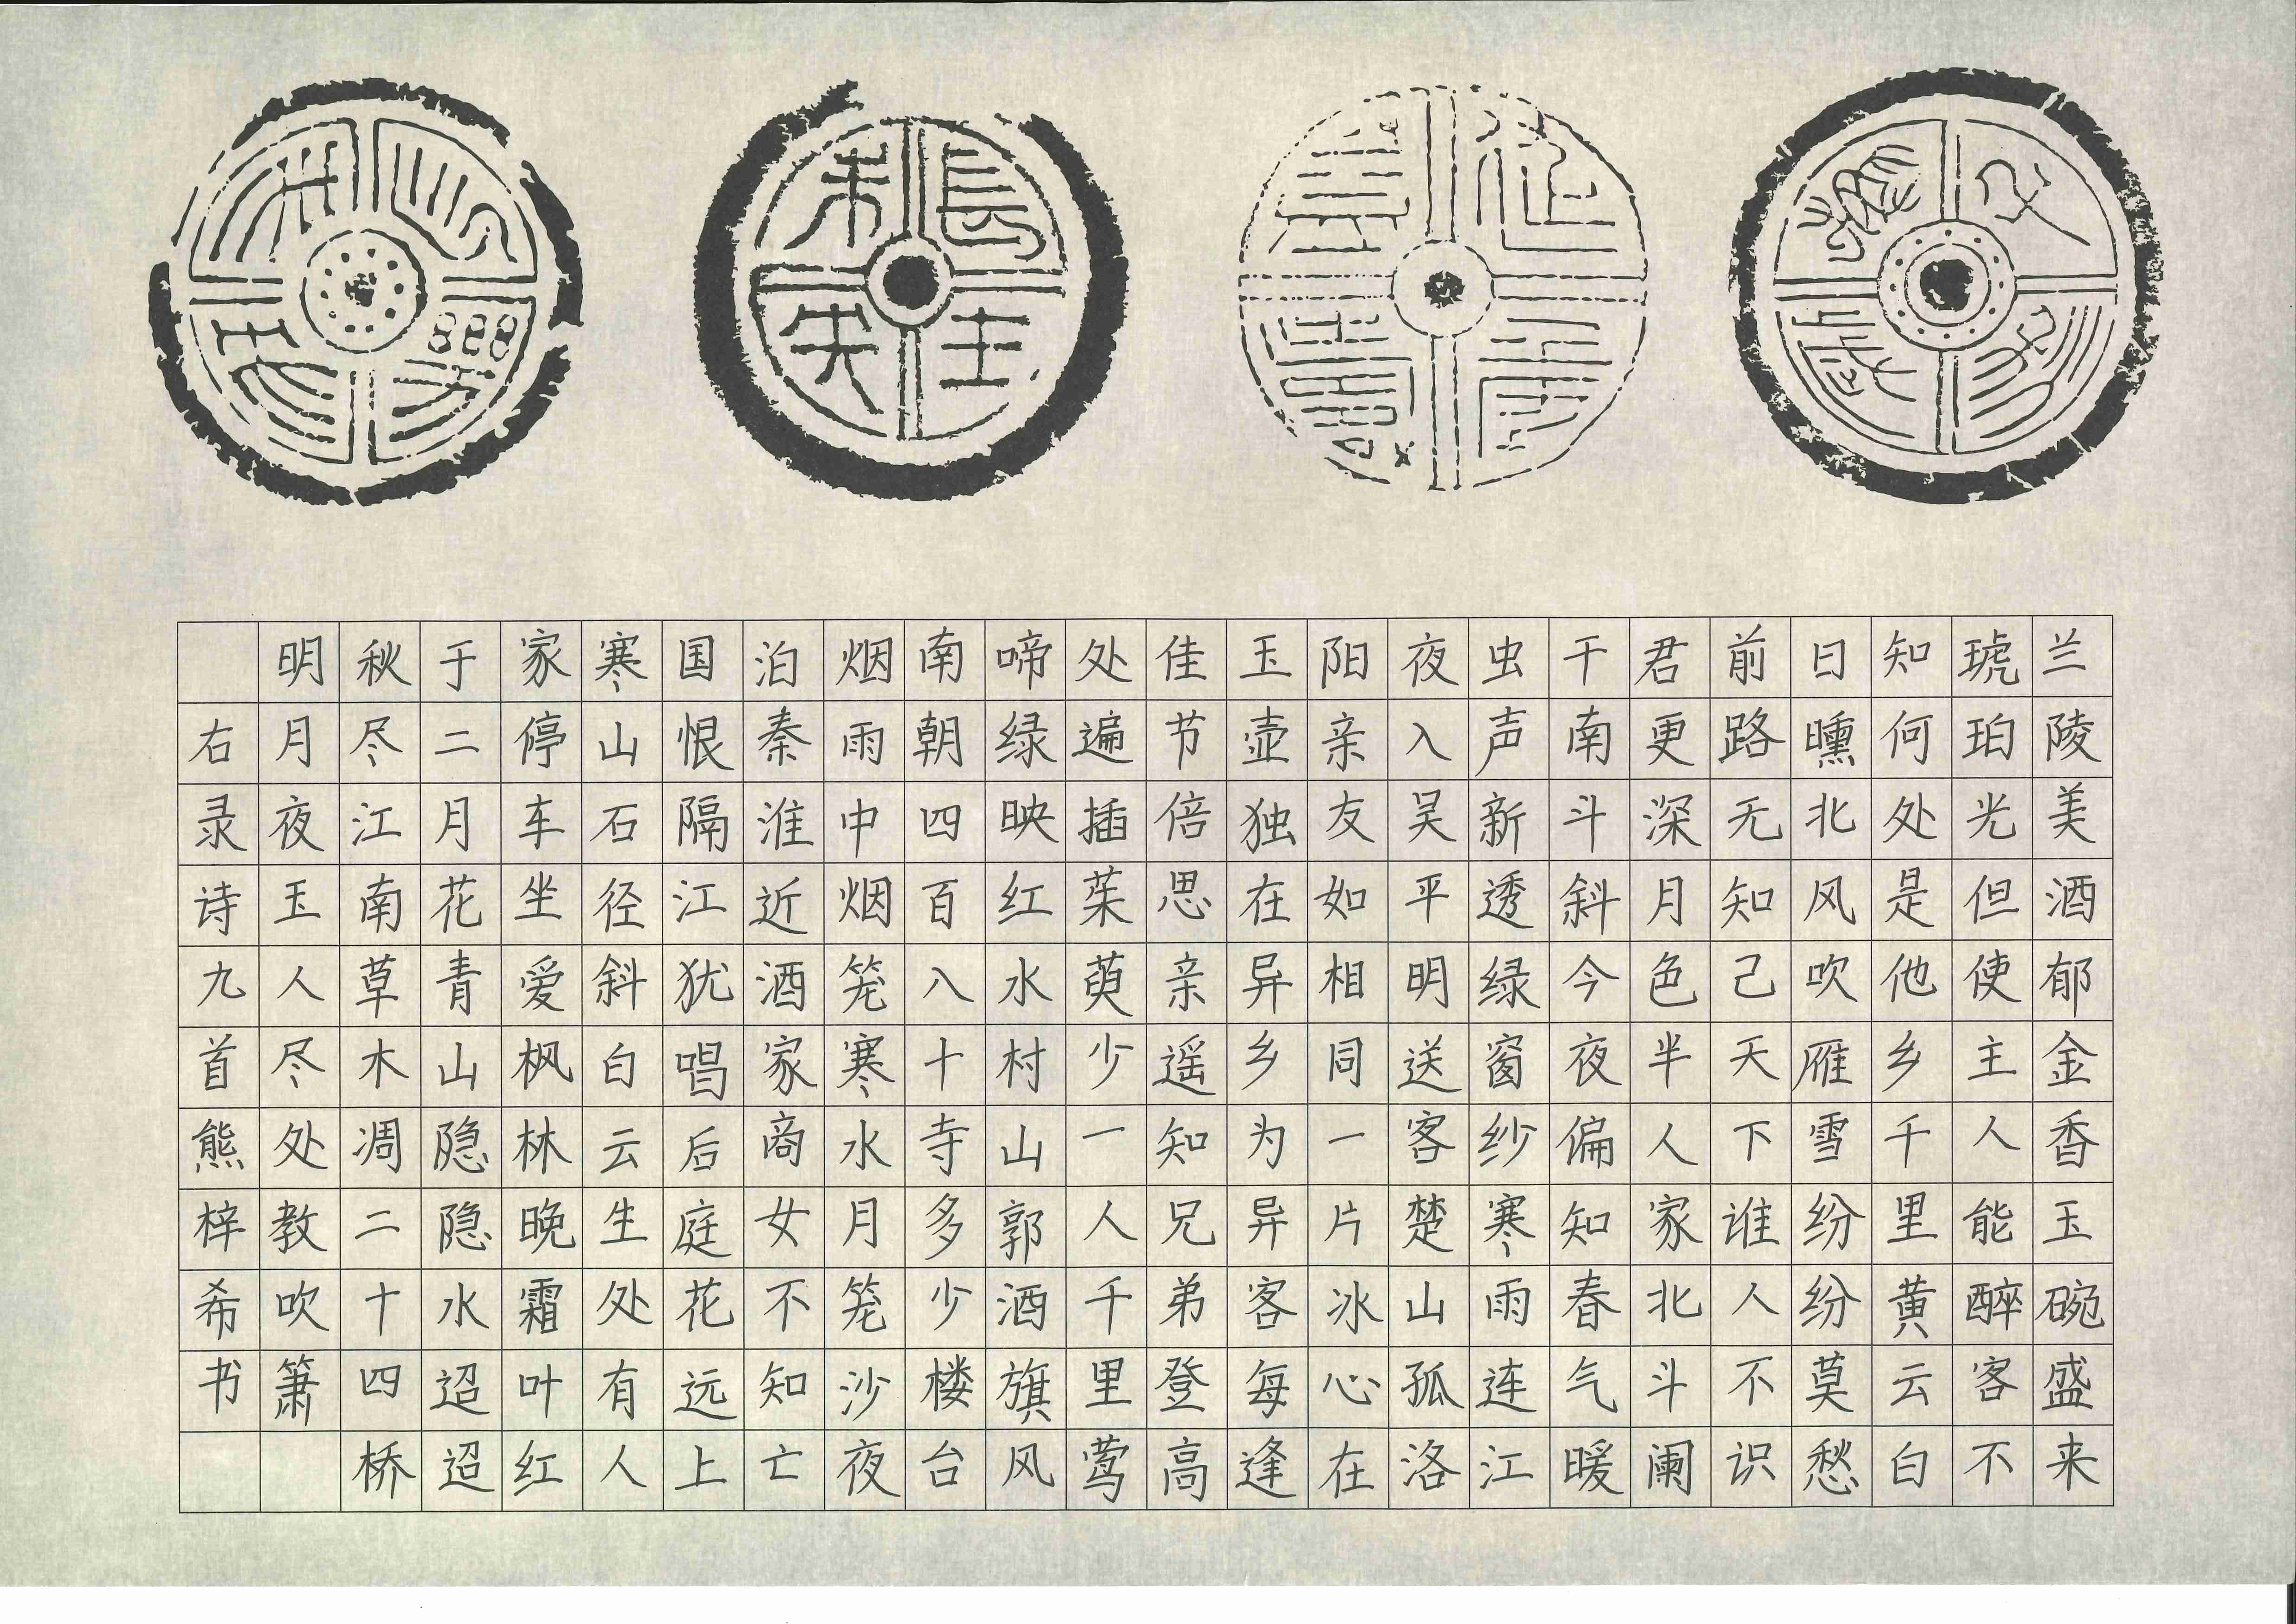 兰陵美酒郁金香玉碗盛来
琥珀光但使主人能醉客不
知何处是他乡千里黄云白
日曛北风吹雁雪纷纷莫愁
前路无知己天下谁人不识
君更深月色半人家北斗阑
干南斗斜今夜偏知春气暖
虫声新透绿窗纱寒雨连江
夜入吴平明送客楚山孤洛
阳亲友如相同一片冰心在
玉壶独在异乡为异客每逢
佳节倍思亲遥知兄弟登高
处遍插茱萸少一人千里莺
啼绿映红水村山郭酒旗风
南朝四百八十寺多少楼台
烟雨中烟笼寒水月笼沙夜
泊秦淮近酒家商女不知亡
国恨隔江犹唱后庭花远上
寒山石径斜白云生处有人
家停车坐爱枫林晚霜叶红
于二月花青山隐隐水迢迢
秋尽江南草木凋二十四桥
明月夜玉人尽教吹箫
右录诗九首熊梓希书